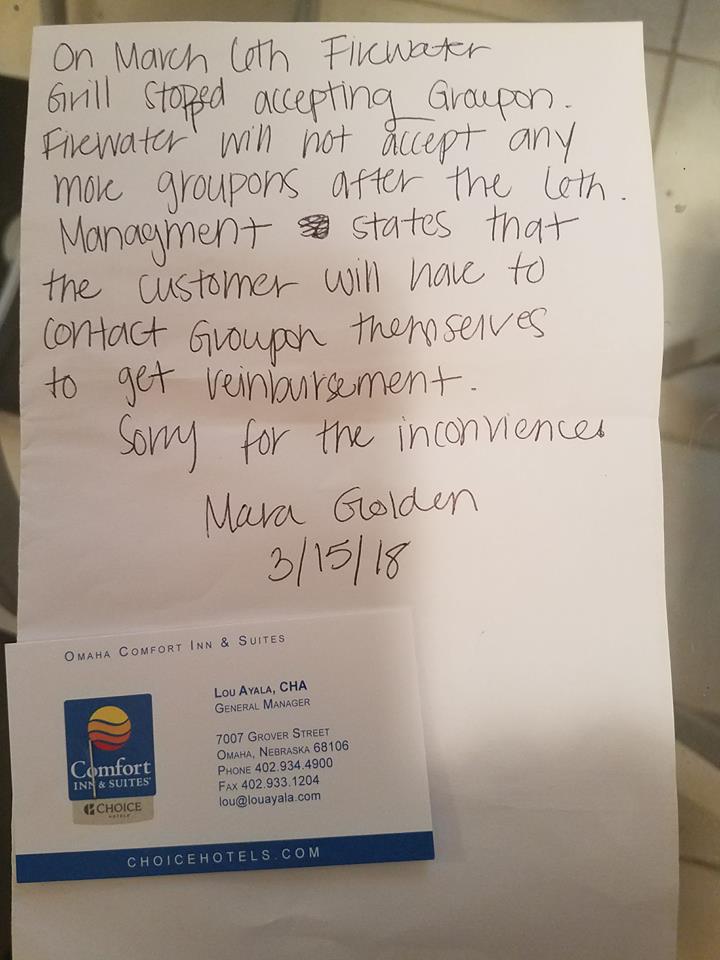 On March 6th Firewater
Grill stopped accepting Groupon.
Firewater will not accept any
more groupons after the 6th.
Managment states that
the customer will have to
contact Groupon themselves
to get reinbursement.
Sorry for the inconviences
Mara Golden
3/15/18
OMAHA COMFORT INN & SUITES
LOU AYALA, CHA
GENERAL MANAGER
7007 GROVER STREET
OMAHA, NEBRASKA 68106
PHONE 402.934.4900
FAX 402.933.1204
lou@louayala.com
Comfort
INN & SUITES
CHOICE
HOTELS
CHOICEHOTELS.COM